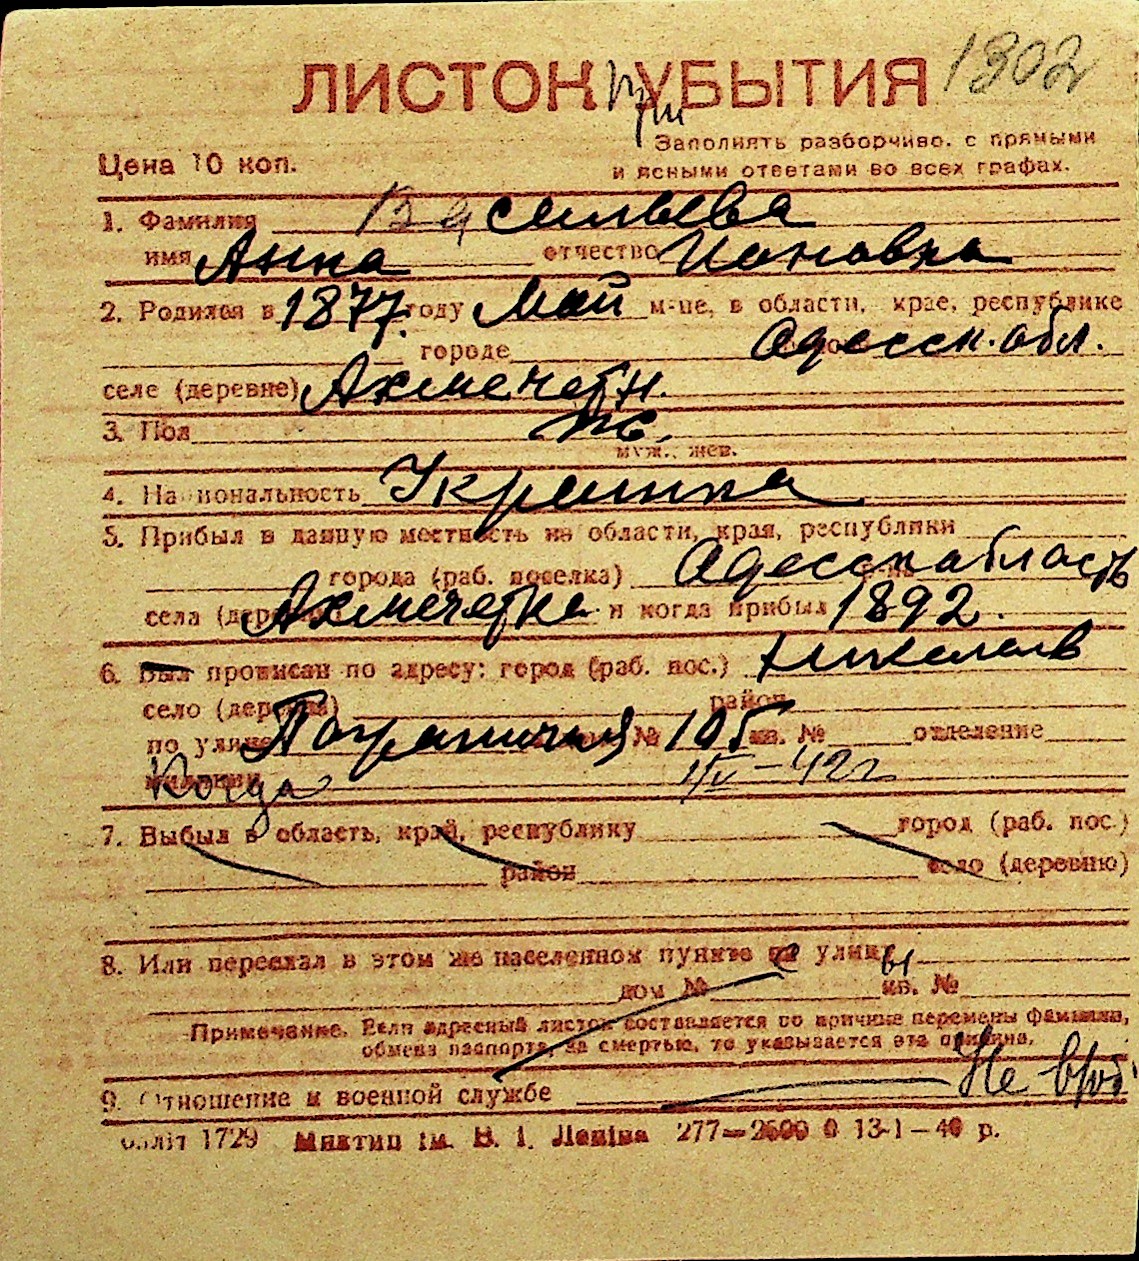 1302
ЛИСТОК УБЫТИЯ
При
Цена 10 коп.
Заполнять разборчиво, с прямыми
и ясными ответами во всех графах.
1. Фамилия Васильева
имя Анна отчество Ионовна
2. Родился в 1877. году Май м-це, в области, крае, республике
городе Одесск. обл.
селе (деревне) Ахмечетк.
3. Пол ж.
муж., жен.
4. Национальность Украинка
5. Прибыл в данную местность из области, края, республики
города (раб. поселка) Одесск область
села (деревни) Ахмечетка и когда прибыл 1892.
6. Был прописан по адресу: город (раб. пос.) Николаев
село (деревня) район
по улице Пограничная № 105 кв. № отделение
милиции Когда 1/IV-42г
7. Выбыл в область, край, республику город (раб. пос.)
район село (деревню)
8. Или переехал в этом же населенном пункте на улицу
дом № кв. №
Примечание. Если адресный листок составляется по причине перемены фамилии,
обмена паспорта, за смертью, то указывается эта причина.
9. Отношение к военной службе Не в/об
Обліт 1729 Миктип ім. В. І. Леніна 277—2600 0 13-1—40 р.